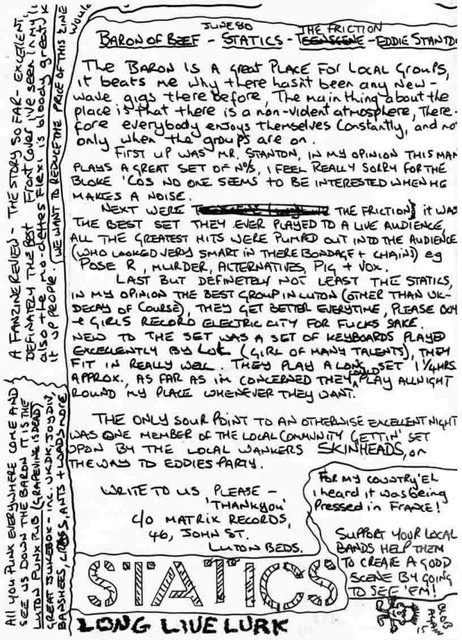 JUNE 80
THE FRICTION
BARON OF BEEF - STATICS - TEENSCENE - EDDIE STANTO
THE BARON IS A GREAT PLACE FOR LOCAL GROUPS,
it beats me why there hasn't been any new-
wave gigs there before, The main thing about the
place is that there is a non-violent atmosphere, There-
fore everybody enjoys themselves constantly, and not
only when the groups are on.
FIRST UP WAS MR. STANTON, IN MY OPINION THIS MAN
PLAYS A GREAT SET OF N°s, I FEEL REALLY SORRY FOR THE
BLOKE 'COS NO ONE SEEMS TO BE INTERESTED WHEN HE
MAKES A NOISE.
NEXT WERE THE FRICTION, IT WAS
THE BEST SET THEY EVER PLAYED TO A LIVE AUDIENCE,
ALL THE GREATEST HITS WERE PUMPED OUT INTO THE AUDIENCE
(WHO LOOKED VERY SMART IN THERE BONDAGE + CHAINS) eg
POSE R, MURDER, ALTERNATIVES, PIG + VOX.
LAST BUT DEFINETELY NOT LEAST THE STATICS,
IN MY OPINION THE BEST GROUP IN LUTON (OTHER THAN UK-
DECAY OF COURSE), THEY GET BETTER EVERYTIME, PLEASE BOY
+ GIRLS RECORD ELECTRIC CITY FOR FUCKS SAKE.
NEW TO THE SET WAS A SET OF KEYBOARDS PLAYED
EXCELLENTLY BY LOL (GIRL OF MANY TALENTS), THEY
FIT IN REALLY WELL. THEY PLAY A LONG SET 1¼HRS.
APPROX, AS FAR AS IM CONCERNED THEY COULD PLAY ALL NIGHT
ROUND MY PLACE WHENEVER THEY WANT.
THE ONLY SOUR POINT TO AN OTHERWISE EXCELLENT NIGHT
WAS ONE MEMBER OF THE LOCAL COMMUNITY GETTIN' SET
UPON BY THE LOCAL WANKERS SKINHEADS, on
THE WAY TO EDDIES PARTY.
WRITE TO US PLEASE -
'THANKYOU'
C/O MATRIX RECORDS,
46, JOHN ST.
LUTON BEDS.
FOR MY COUNTRY 'EL
I heard it was Being
Pressed in France!
SUPPORT YOUR LOCAL
BANDS HELP THEM
TO CREATE A GOOD
SCENE BY GOING
TO SEE 'EM!
STATICS
LONG LIVE LURK
A FANZINE REVIEW - THE STORY SO FAR - EXCELLENT,
DEFINATELY THE BEST Front Cover Ive seen in my
also the mo-dettes Flexi is bloody great
it up people
WE WANT TO REDUCE THE PRICE OF THIS ZINE
would
All you PUNX EVERYWHERE COME AND
SEE US DOWN THE BARON IT IS THE
LUTON PUNX PUB (GRAPEVINE IS DEAD)
GREAT JUKEBOX - INC. UKDK, JOY DIV,
BANSHEES, CRASS, ANTS + LOADS MORE